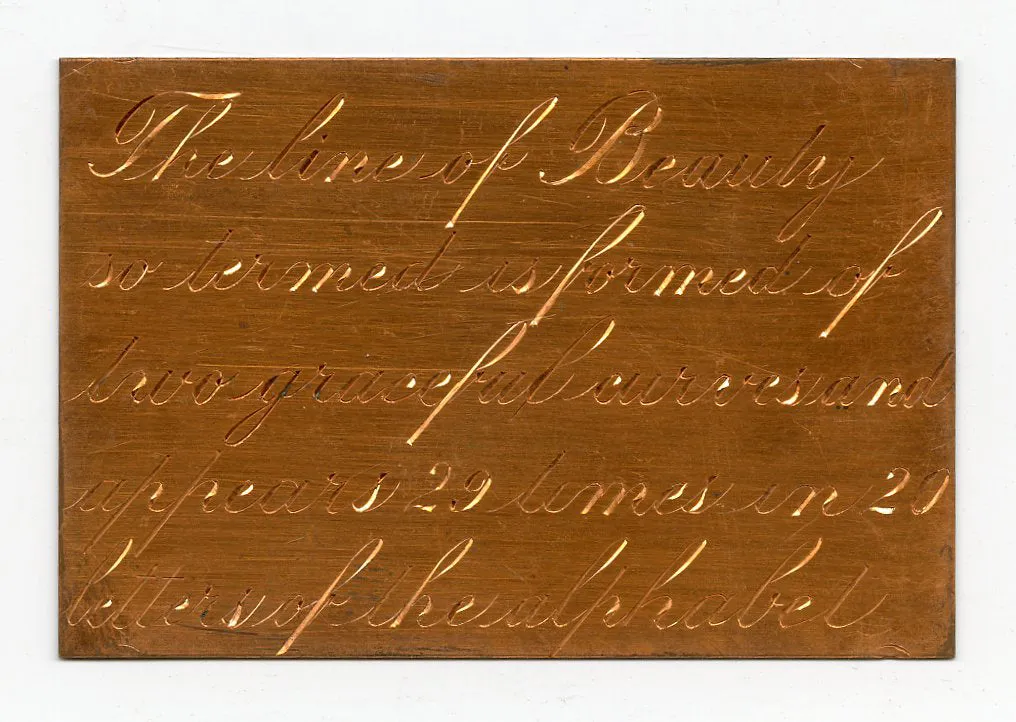 The line of Beauty
so termed is formed of
two graceful curves and
appears 29 times in 20
letters of the alphabet